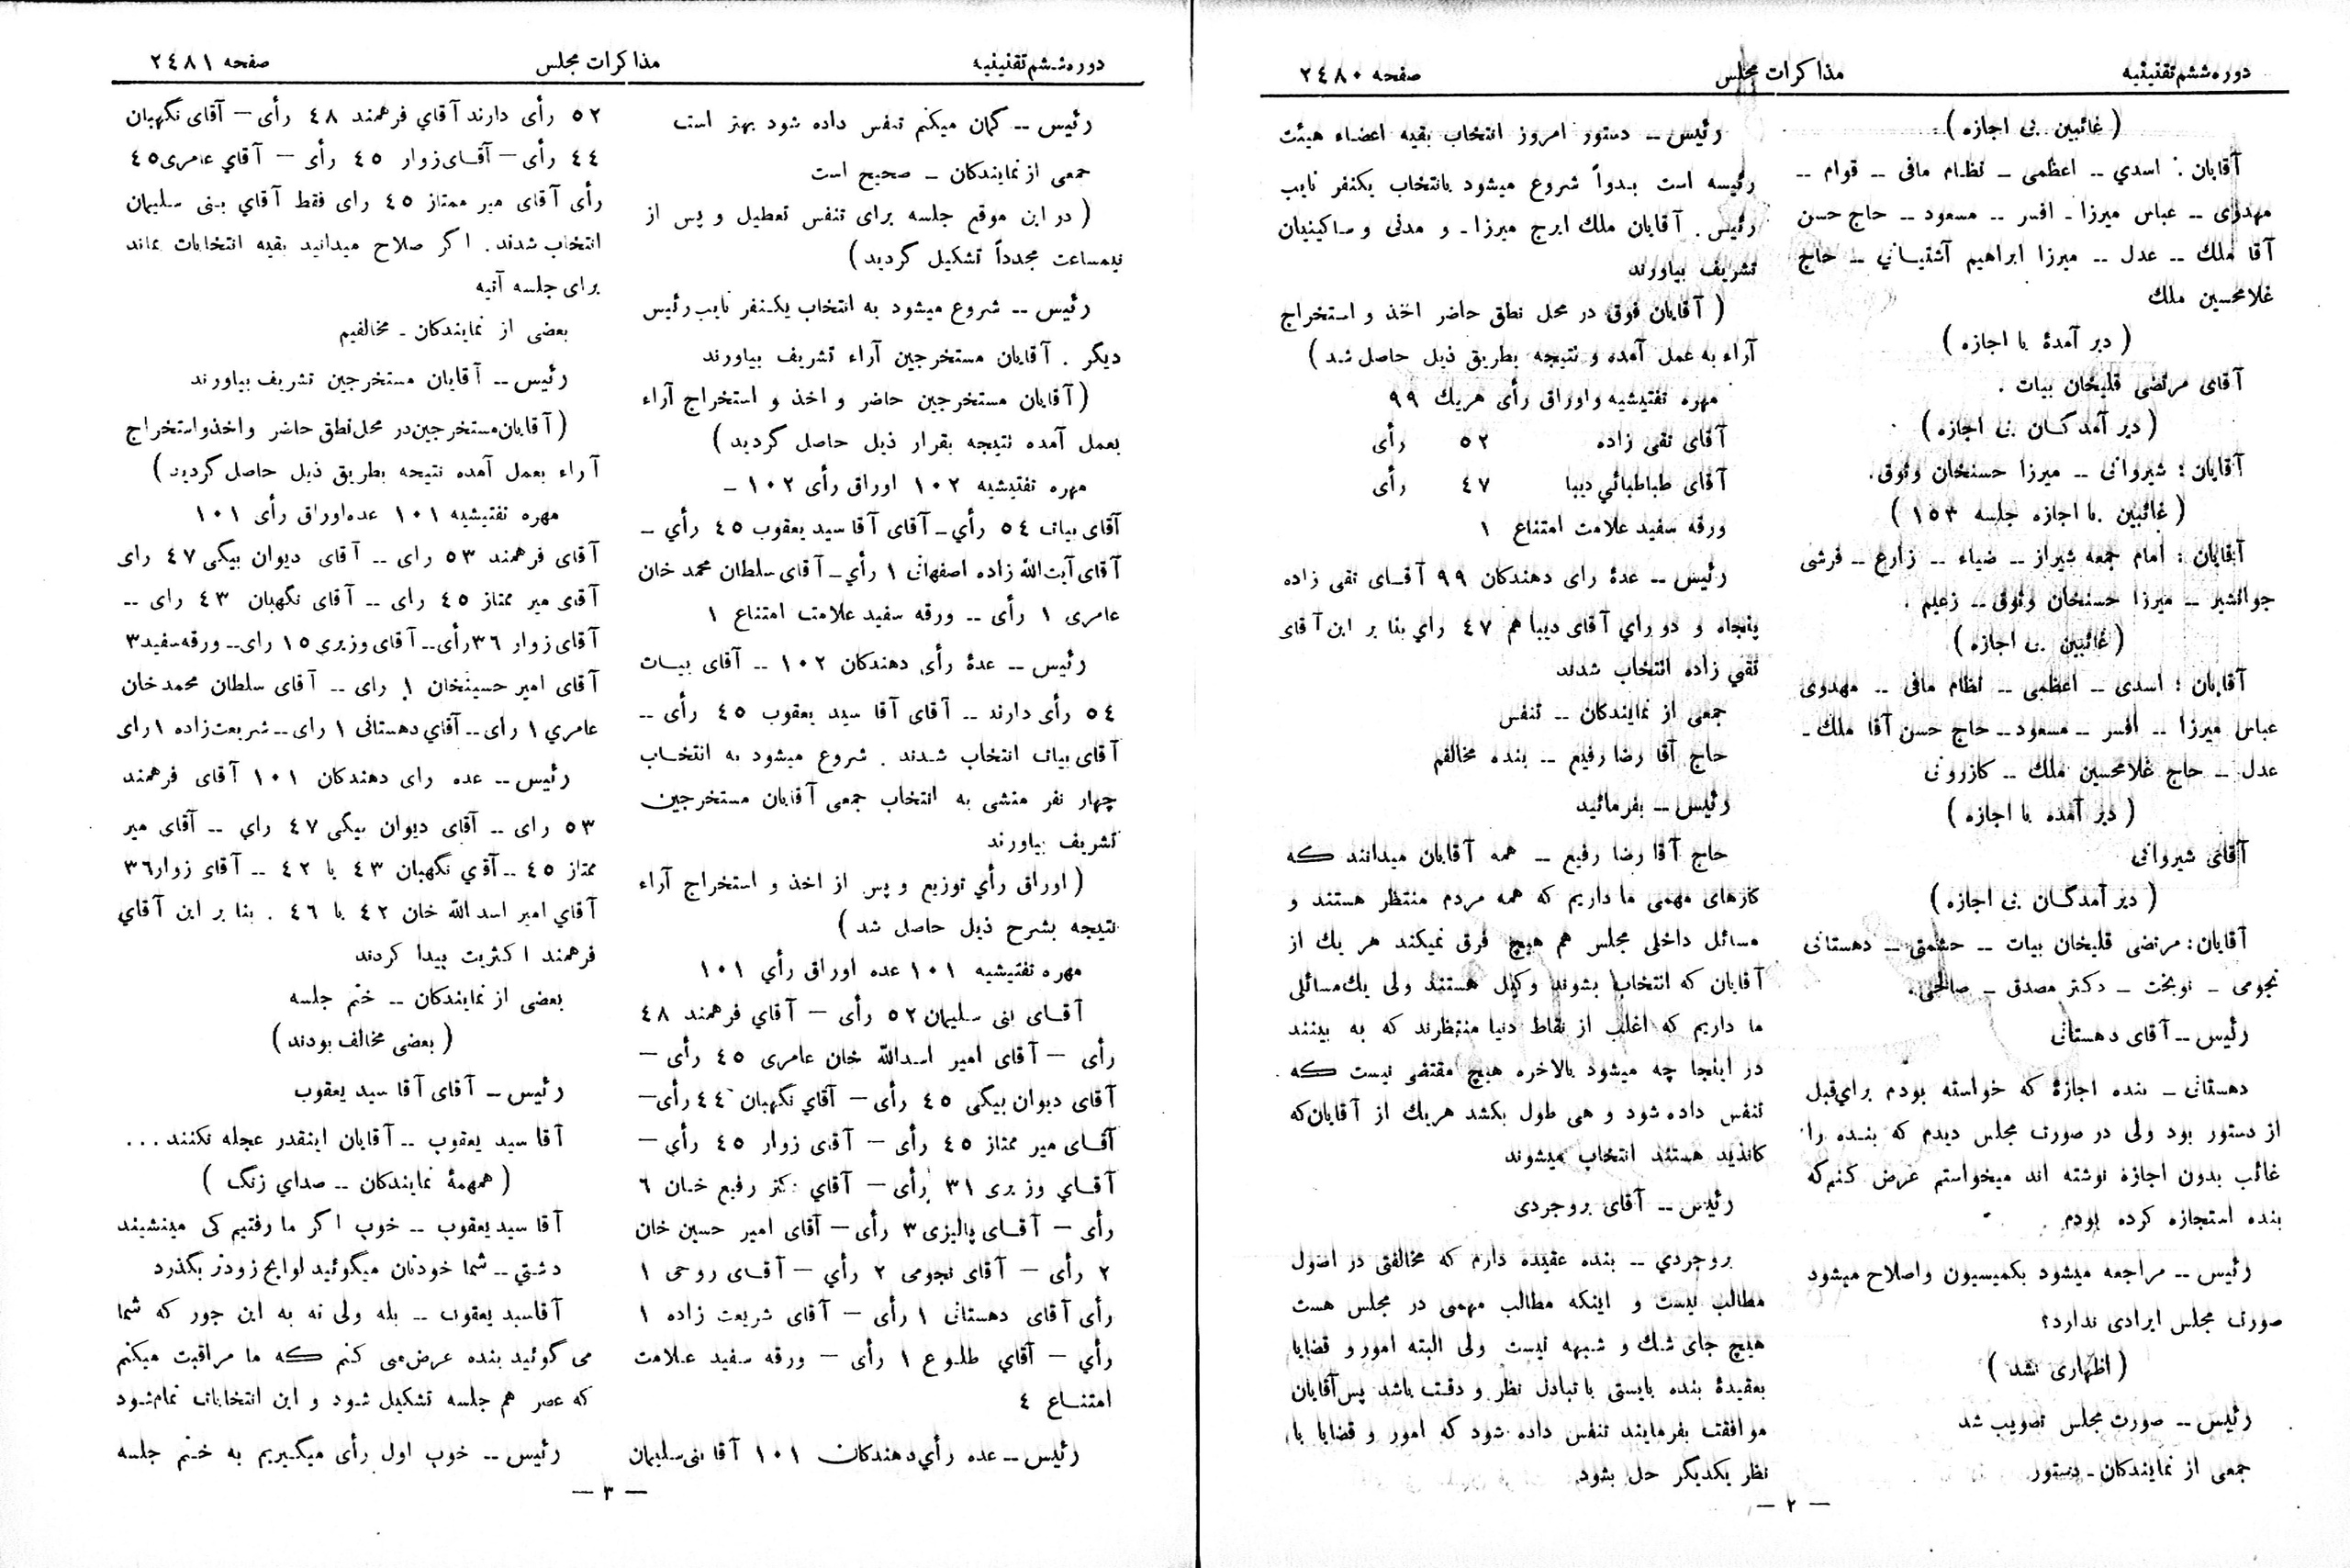 دوره ششم تقنینیه
مذاکرات مجلس
صفحه ۲٤۸۰
( غائبین بی اجازه )
آقایان : اسدي -- اعظمی -- نظام مافی -- قوام --
مهدوی -- عباس میرزا - افسر -- مسعود -- حاج حسن
آقا ملك -- عدل -- میرزا ابراهیم آشتیـانی -- حاج
غلامحسین ملك
( دیر آمدهٔ با اجازه )
آقای مرتضی قلیخان بیات .
( دیر آمدگـان بی اجازه )
آقایان : شیروانی -- میرزا حسنخان وثوق .
( غائبین با اجازه جلسه ۱۵۳ )
آقایان : امام جمعه شیراز -- ضیاء -- زارع -- فرشی
جوانشیر -- میرزا حسنخان وثوق -- زعیم .
( غائبین بی اجازه )
آقایان : اسدی -- اعظمی -- نظام مافی -- مهدوی
عباس میرزا -- افسر -- مسعود -- حاج حسن آقا ملك -
عدل -- حاج غلامحسین ملك -- کازرونی
( دیر آمده با اجازه )
آقای شیروانی
( دیر آمدگـان بی اجازه )
آقایان : مرتضی قلیخان بیات -- حشمتی -- دهستانی
نجومی - نوبخت - دکتر مصدق - صالحی.
رئیس -- آقای دهستانی
دهستانی - بنده اجازهٔ که خواسته بودم براي قبل
از دستور بود ولی در صورت مجلس دیدم که بنـده را
غائب بدون اجازه نوشته اند میخواستم عرض کنم که
بنده استجازه کرده بودم
رئیس -- مراجعه میشود بکمیسیون و اصلاح میشود
صورت مجلس ایرادی ندارد؟
( اظهاری نشد )
رئیس -- صورت مجلس تصویب شد
جمعی از نمایندکان - دستور
رئیس -- دستور امروز انتخاب بقیه اعضاء هیئت
رئیسه است بـدواً شروع میشود بانتخاب یکنفر نایب
رئیس . آقایان ملك ایرج میرزا - و مدنی و ساکینیان
تشریف بیاورند
( آقایان فوق در محل نطق حاضر اخذ و استخراج
آراء به عمل آمده و نتیجه بطریق ذیل حاصل شـد )
مهره تفتیشیه و اوراق رأی هریك ۹۹
آقای تقی زاده ۵۲ رأی
آقای طباطبائي دیبا ٤۷ رأی
ورقه سفید علامت امتناع ۱
رئیس -- عدهٔ رای دهندکان ۹۹ آقـای تقی زاده
پنجاه و دو راي آقای دیبا هم ٤۷ راي بنا بر این آقای
تقي زاده انتخاب شدند
جمعی از نمایندکان -- تنفس
حاج آقا رضا رفیع -- بنده مخالفم
رئیس -- بفرمائید
حاج آقا رضا رفیع -- همه آقایان میدانند که
کارهای مهمی ما داریم که همه مردم منتظر هستند و
مسائل داخلی مجلس هم هیچ فرق نمیکند هر یك از
آقایان که انتخاب بشوند وکیل هستند ولی یك مسائلی
ما داریم که اغلب از نقاط دنیا منتظرند که به بینند
در اینجا چه میشود بالاخره هیچ مقتضی نیست که
تنفس داده شود و هی طول بکشد هر یك از آقایان که
کاندید هستند انتخاب میشوند
رئیس -- آقای بروجردی
بروجردي -- بنده عقیده دارم که مخالفتی در اصول
مطالب نیست و اینکه مطالب مهمی در مجلس هست
هیچ جای شـك و شـبهه نیست ولی البته امور و قضایا
بعقیدهٔ بنده بایستی با تبادل نظر و دقت باشد پس آقایان
موافقت بفرمایند تنفس داده شود که امور و قضایا با
نظر یکدیگر حل بشود
— ۲ —
دوره ششم تقنینیه
مذاکرات مجلس
صفحه ۲٤۸۱
رئیس -- گمان میکنم تنفس داده شود بهتر است
جمعی از نمایندکان - صحیح است
( در این موقع جلسه برای تنفس تعطیل و پس از
نیمساعت مجدداً تشکیل گردید )
رئیس -- شروع میشود به انتخاب یکـنفر نایب رئیس
دیگر . آقایان مستخرجین آراء تشریف بیاورند
( آقایان مستخرجین حاضر و اخذ و استخراج آراء
بعمل آمده نتیجه بقرار ذیل حاصل گردید )
مهره تفتیشیه ۱۰۲ اوراق رأی ۱۰۲ -
آقای بیات ٥٤ رأي - آقای آقا سید یعقوب ٤٥ رأي -
آقای آیت‌الله زاده اصفهانی ۱ رأي - آقای سلطان محمد خان
عامری ۱ رأی -- ورقه سفید علامت امتناع ۱
رئیس -- عدهٔ رأی دهندکان ۱۰۲ -- آقای بیـات
٥٤ رأی دارند -- آقای آقا سید یعقوب ٤٥ رأی --
آقای بیات انتخاب شـدند . شروع میشود به انتخـاب
چهار نفر منشی به انتخاب جمعی آقایان مستخرجین
تشریف بیاورند
( اوراق رأي توزیع و پس از اخذ و استخراج آراء
نتیجه بشرح ذیل حاصل شد )
مهره تفتیشیه ۱۰۱ عده اوراق رأي ۱۰۱
آقـای بنی سلیمان ٥۲ رأی — آقاي فرهمند ٤۸
رأی — آقای امیر اسدالله خان عامری ٤٥ رأی —
آقای دیوان بیگی ٤٥ رأی — آقاي نگهبان ٤٤ رأی—
آقـای میر ممتاز ٤٥ رأی — آقای زوار ٤٥ رأی —
آقـاي وزیری ۳۱ رأی — آقاي دکتر رفیع خـان ٦
رأی — آقـای پالیزی ۳ رأی — آقای امیر حسین خان
۲ رأی — آقای نجومی ۲ رأي — آقـای روحی ۱
رأی آقای دهستانی ۱ رأی — آقای شریعت زاده ۱
رأي — آقاي طلـوع ۱ رأی — ورقه سفید عـلامت
امتنـاع ٤
رئیس -- عده رأي دهندکان ۱۰۱ آقا بنی سلیمان
٥۲ رأی دارند آقاي فرهمند ٤۸ رأی — آقای نگهبان
٤٤ رأی — آقـای زوار ٤٥ رأی — آقاي عامری ٤٥
رأی آقای میر ممتاز ٤٥ رای فقط آقاي بـنی سلیمان
انتخاب شدند . اکر صلاح میدانید بقیه انتخابات بماند
برای جلسه آتیه
بعضی از نمایندکان - مخالفیم
رئیس -- آقایان مستخرجین تشریف بیاورند
( آقایان مستخرجین در محل نطق حاضر و اخذ و استخراج
آراء بعمل آمده نتیجه بطریق ذیل حاصل گردید )
مهره تفتیشیه ۱۰۱ عده اوراق رأی ۱۰۱
آقای فرهمند ٥۳ رای -- آقای دیوان بیگی ٤۷ رای
آقای میر ممتاز ٤٥ رای -- آقای نگهبان ٤۳ رای --
آقای زوار ۳٦ رأی -- آقای وزیری ۱٥ رای -- ورقه سفید ۳
آقای امیر حسینخان ۱ رای -- آقای سلطان محمد خان
عامري ۱ رای -- آقاي دهستانی ۱ رای -- شریعت‌زاده ۱ رای
رئیس -- عده رای دهندکان ۱۰۱ آقای فرهمند
٥۳ رای -- آقای دیوان بیگی ٤۷ راي -- آقای میر
ممتاز ٤٥ -- آقاي نگهبان ٤۳ یا ٤۲ -- آقای زوار ۳٦
آقاي امیر اسد الله خان ٤۲ یا ٤٦ . بنا بر این آقاي
فرهمند اکثریت پیدا کردند
بعضی از نمایندکان -- ختم جلسه
( بعضی مخالف بودند )
رئیس - آقای آقا سید یعقوب
آقا سید یعقوب -- آقایان اینقدر عجله نکنند...
( همهمهٔ نمایندکان -- صداي زنگ )
آقا سید یعقوب -- خوب اکر ما رفتیم کی مینشیند
دشتي -- شما خودتان میگوئید لوایح زودتر بگذرد
آقا سید یعقوب -- بله ولی نه به این جور که شما
می گوئید بنده عرض می کنم که ما مراقبت میکنم
که عصر هم جلسه تشکیل شود و این انتخابات تمام شود
رئیس -- خوب اول رأی میگیریم به ختم جلسه
— ۳ —